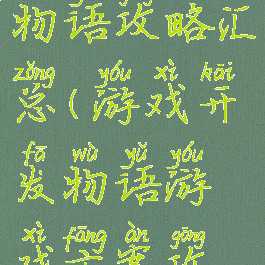 物语攻略汇
zǒng yóu xì kāi
总(游戏开
fā wù yǔ yóu
发物语游
xì fāng àn gōng
戏方案攻